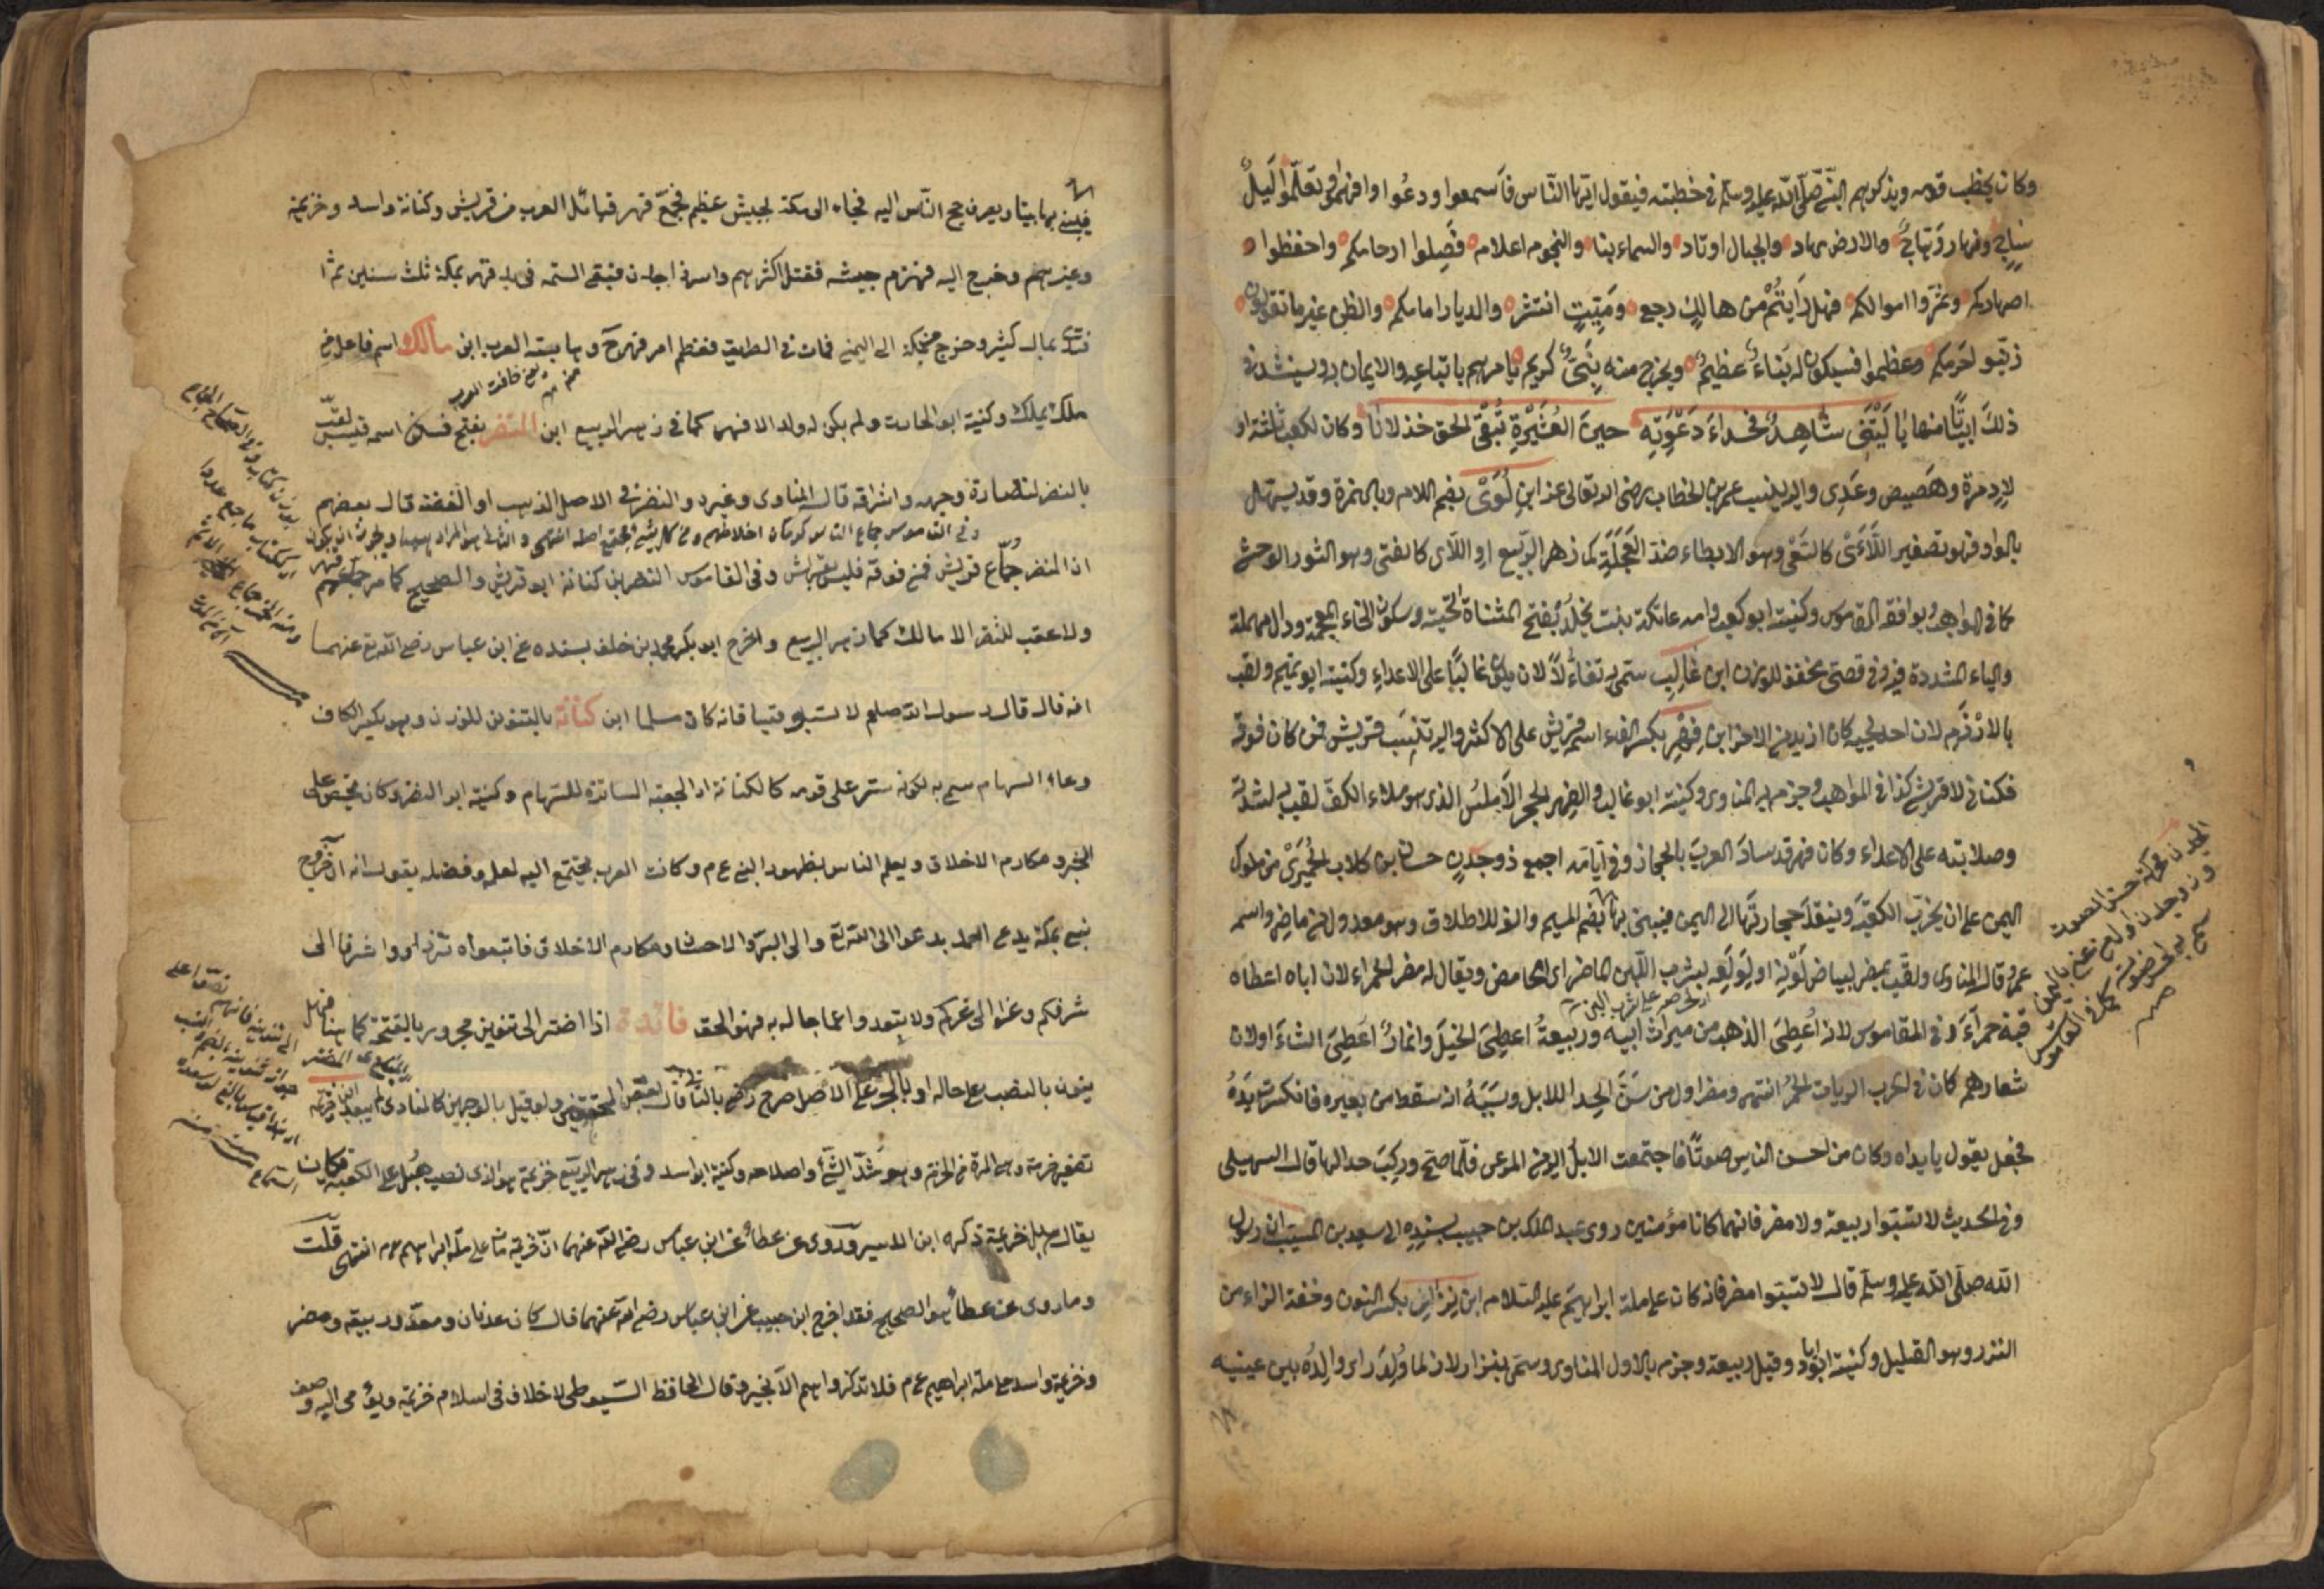 وكان يخطب قومه ويذكرهم النبي صلى الله عليه وسلم في خطبته فيقول ايها الناس فاسمعوا وعوا وافهموا وتعلموا ليل
ونهار والارض مهاد والجبال اوتاد والسماء بنا والنجوم اعلام فصلوا ارحامكم واحفظوا
اصهاركم وثمروا اموالكم فهل رايتم من هالك رجع وميت انتشر والديار امامكم والظن غير ما تقولون
زينوا حرمكم وعظموا فسيكون له بناء عظيم ويخرج منه نبي كريم يامرهم باتباعه والايمان به وينشد في
ذلك ابياتا منها يا ليتني شاهد فحواء دعوته حين العشيرة تبغي الحق خذلانا وكان لكعب ثلثة اولاد
مرة وهصيص وعدي واليه ينسب عمر بن الخطاب رضي الله تعالى عنه ابن لؤي بضم اللام وبالهمزة وقد يسهل
بالواو فهو تصغير اللأي كالسعي وهو الابطاء ضد العجلة كما في زهر الربيع او اللأى كالفتى وهو الثور الوحشي
كما في المواهب ويوافقه القاموس وكنيته ابو كعب وامه عاتكة بنت يخلد بفتح المثناة التحتية وسكون الخاء المعجمة ودال مهملة
والياء المشددة فيه وفي قصي مخفف للوزن ابن غالب سمي به تفاؤلا لان يكون غالبا على الاعداء وكنيته ابو تيم ولقب
بالادرم لان احد لحييه كان ازيد من الاخر ابن فهر بكسر الفاء اسمه قريش على الاكثر واليه تنسب قريش فمن كان فوقه
فكناني لا قرشي كذا في المواهب وجزم به المناوي وكنيته ابو غالب والفهر الحجر الاملس الذي هو ملاء الكف لقب به لشدته
وصلابته على الاعداء وكان فهر قد ساد العرب بالحجاز وفي ايامه اجمع ذو جدن حسان بن كلاب الحميري من ملوك
اليمن على ان يخرب الكعبة وينقل حجارتها الى اليمن فيبني بها بضم الميم والف للاطلاق وهو معدول من ماضر واسمه
عمرو قال المناوي ولقب بمضر لبياض لونه او لولعه لشرب اللبن الماضر اي الحامض ويقال له مضر الحمراء لان اباه اعطاه
قبة حمراء وفي القاموس لانه اعطي الذهب من ميراث ابيه وربيعة اعطي الخيل وانمار اعطي الشاء اولان
شعارهم كان في الحرب الرايات الحمر انتهى ومضر اول من سن الحداء للابل وسببه انه سقط من بعيره فانكسرت يده
فجعل يقول يا يداه وكان من احسن الناس صوتا فاجتمعت الابل اليه من المرعى فلما صح وركب حدا لها قال السهيلي
وفي الحديث لا تسبوا ربيعة ولا مضر فانهما كانا مؤمنين روى عبد الملك بن حبيب بسنده الى سعيد بن المسيب ان رسول
الله صلى الله عليه وسلم قال لا تسبوا مضر فانه كان على ملة ابراهيم عليه السلام ابن نزار بكسر النون وخفة الزاء من
النزر وهو القليل وكنيته ابو اياد وقيل ربيعة وجزم بالاول المناوي وسمي بنزار لانه لما ولد راى والده بين عينيه
الجدن محركة حسن الصوت
بها بيتا ويصرف حج الناس اليه فجاء الى مكة بجيش عظيم فجمع فهر قبائل العرب من قريش وكنانة واسد وخزيمة
وغيرهم وخرج اليه فهزم جيشه فقتل اكثرهم واسر ذا جدن فبقي في يد فهر بمكة ثلث سنين ثم
بمال كثير وخرج من مكة الى اليمن فمات في الطريق فعظم امر فهر وهابته العرب ابن مالك اسم فاعل من
ملك يملك وكنيته ابو الحارث ولم يكن له ولد الا فهر كما في زهر الربيع ابن النضر بفتح فسكون اسمه قيس لقب
بالنضر لنضارة وجهه واشراقه قال المناوي وغيره والنضر في الاصل الذهب او الفضة قال بعضهم
ان النضر جماع قريش فمن فوقه فليس بقرشي وفي القاموس النضر بن كنانة ابو قريش والصحيح كما مر جماعهم فهر
ولا عقب للنضر الا مالك كما في زهر الربيع واخرج ابو بكر محمد بن خلف بسنده عن ابن عباس رضي الله عنهما
انه قال قال رسول الله صلعم لا تسبوا قيسا فانه كان مسلما ابن كنانة بالتنوين للوزن وهو بكسر الكاف
وعاء السهام سمي به لكونه ستر على قومه كالكنانة او الجعبة الساترة للسهام وكنيته ابو النضر وكان يحض على
الخير ومكارم الاخلاق ويعلم الناس بظهور النبي عم وكانت العرب تجتمع اليه لعلمه وفضله يقول انه آن خروج
نبي بمكة يدعى احمد يدعو الى الله تع والى البر والاحسان ومكارم الاخلاق فاتبعوه تزدادوا شرفا الى
شرفكم وعزا الى عزكم ولا تبعدوا عما جاء به فهو الحق فائدة اذا اضطر الى تنوين مجرور بالفتحة كما هنا فهل
ينون بالنصب على حاله او بالجر على الاصل صرح بالثاني بعض المحققين ولو قيل بالوجهين كالمنادى لم يبعد ابن خزيمة
تصغير خزمة وهي المرة من الخزم وهو شد الشيء واصلاحه وكنيته ابو اسد وفي زهر الربيع خزيمة هو الذي نصب هبل على الكعبة فكان
يقال هبل خزيمة ذكره ابن الاثير وروى عن عطاء عن ابن عباس رضي الله عنهما ان خزيمة مات على ملة ابراهيم عم انتهى قلت
وما روى عن عطاء هو الصحيح فقد اخرج ابن حبيب عن ابن عباس رضي الله عنهما قال كان عدنان ومعد وربيعة ومضر
وخزيمة واسد على ملة ابراهيم عم فلا تذكروا اسمهم الا بخير وقال الحافظ السيوطي لا خلاف في اسلام خزيمة ويومى اليه وصف